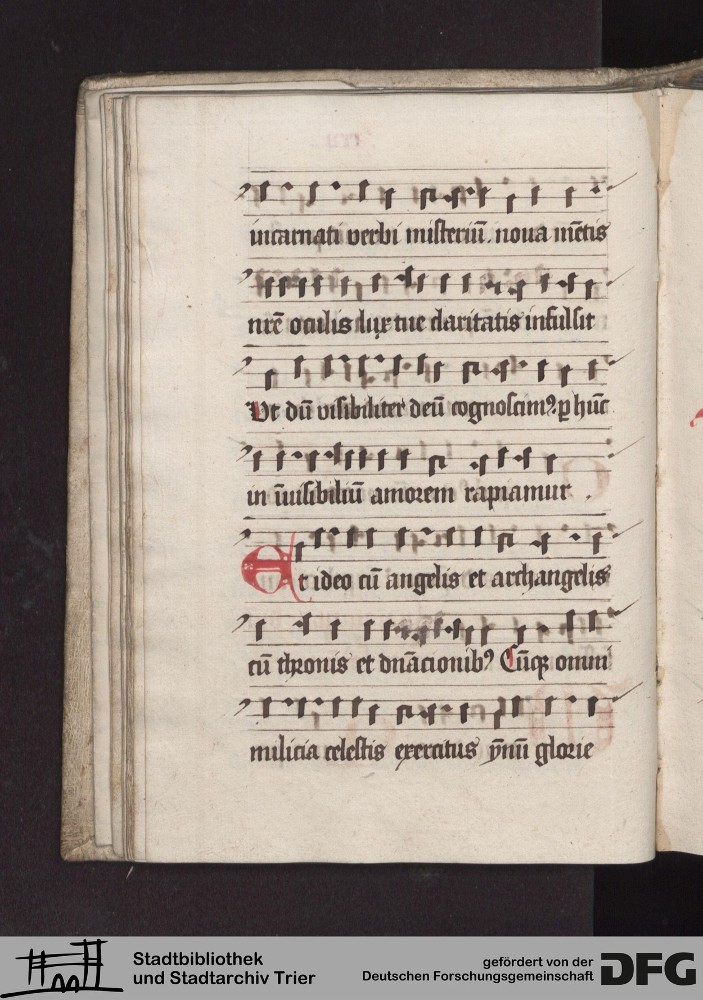 incarnati verbi misteriū. noua mētis
nr̄e oculis lux tue claritatis infulsit
Vt dū visibiliter deū cognoscimꝰ. ꝑ hūc
in īuisibiliū amorem rapiamur .
Et ideo cū angelis et archangelis
cū thronis et dn̄acionibꝰ Cūqꝫ omni
milicia celestis exercitus ẏmnū glorie
Stadtbibliothek
und Stadtarchiv Trier
gefördert von der
Deutschen Forschungsgemeinschaft
DFG